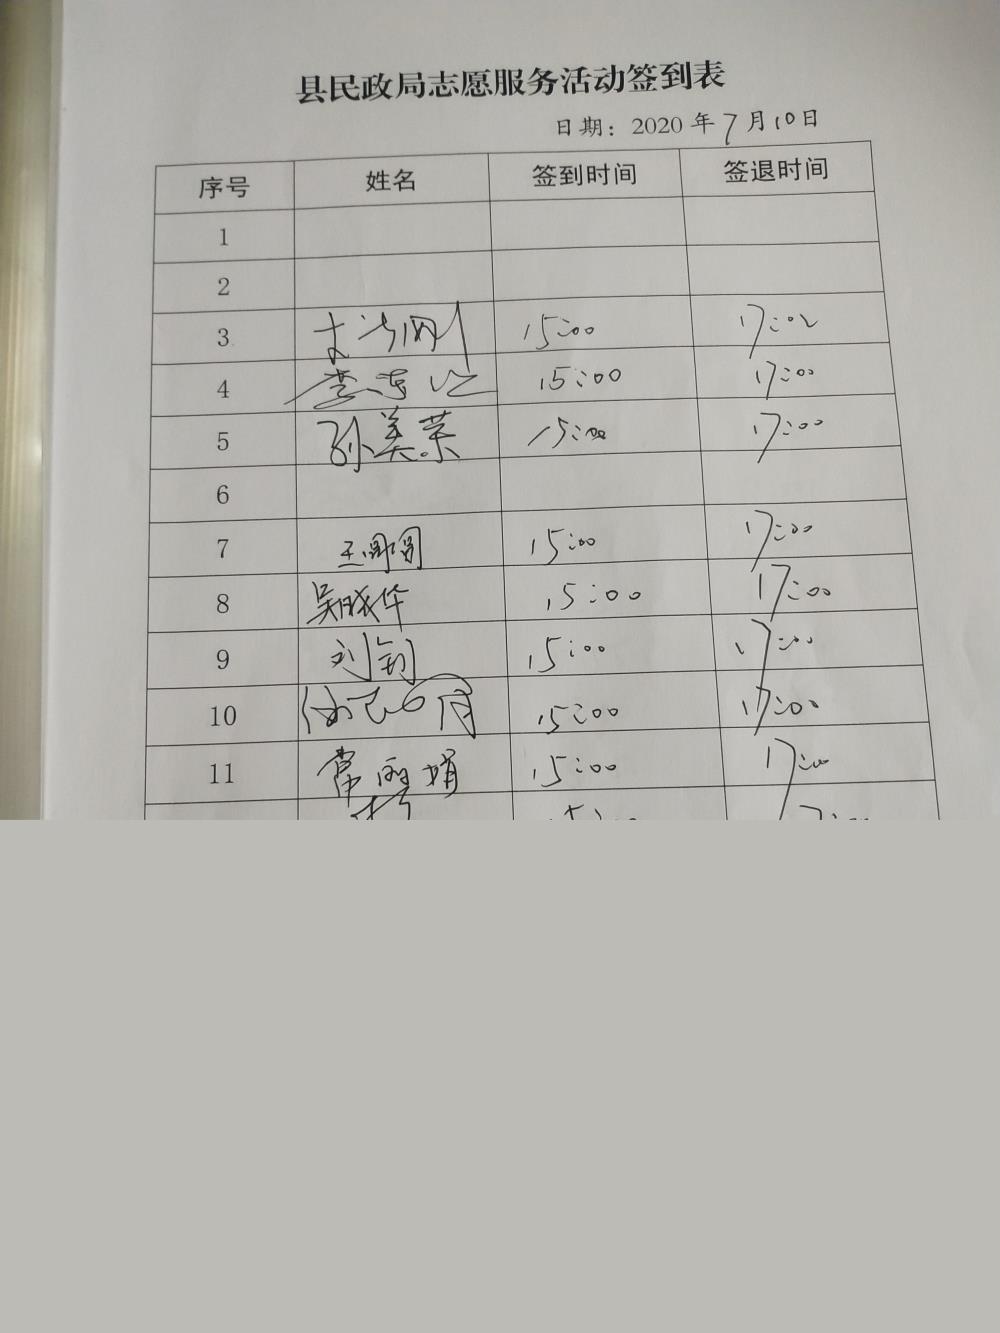 县民政局志愿服务活动签到表
日期：2020年7月10日
序号 姓名 签到时间 签退时间
1
2
3 15:00 17:00
4 15:00 17:00
5 孙美荣 15:00 17:00
6
7 王圆圆 15:00 17:00
8 吴晓华 15:00 17:00
9 刘钊 15:00 17:00
10 15:00 17:00
11 常丽娟 15:00 17:00